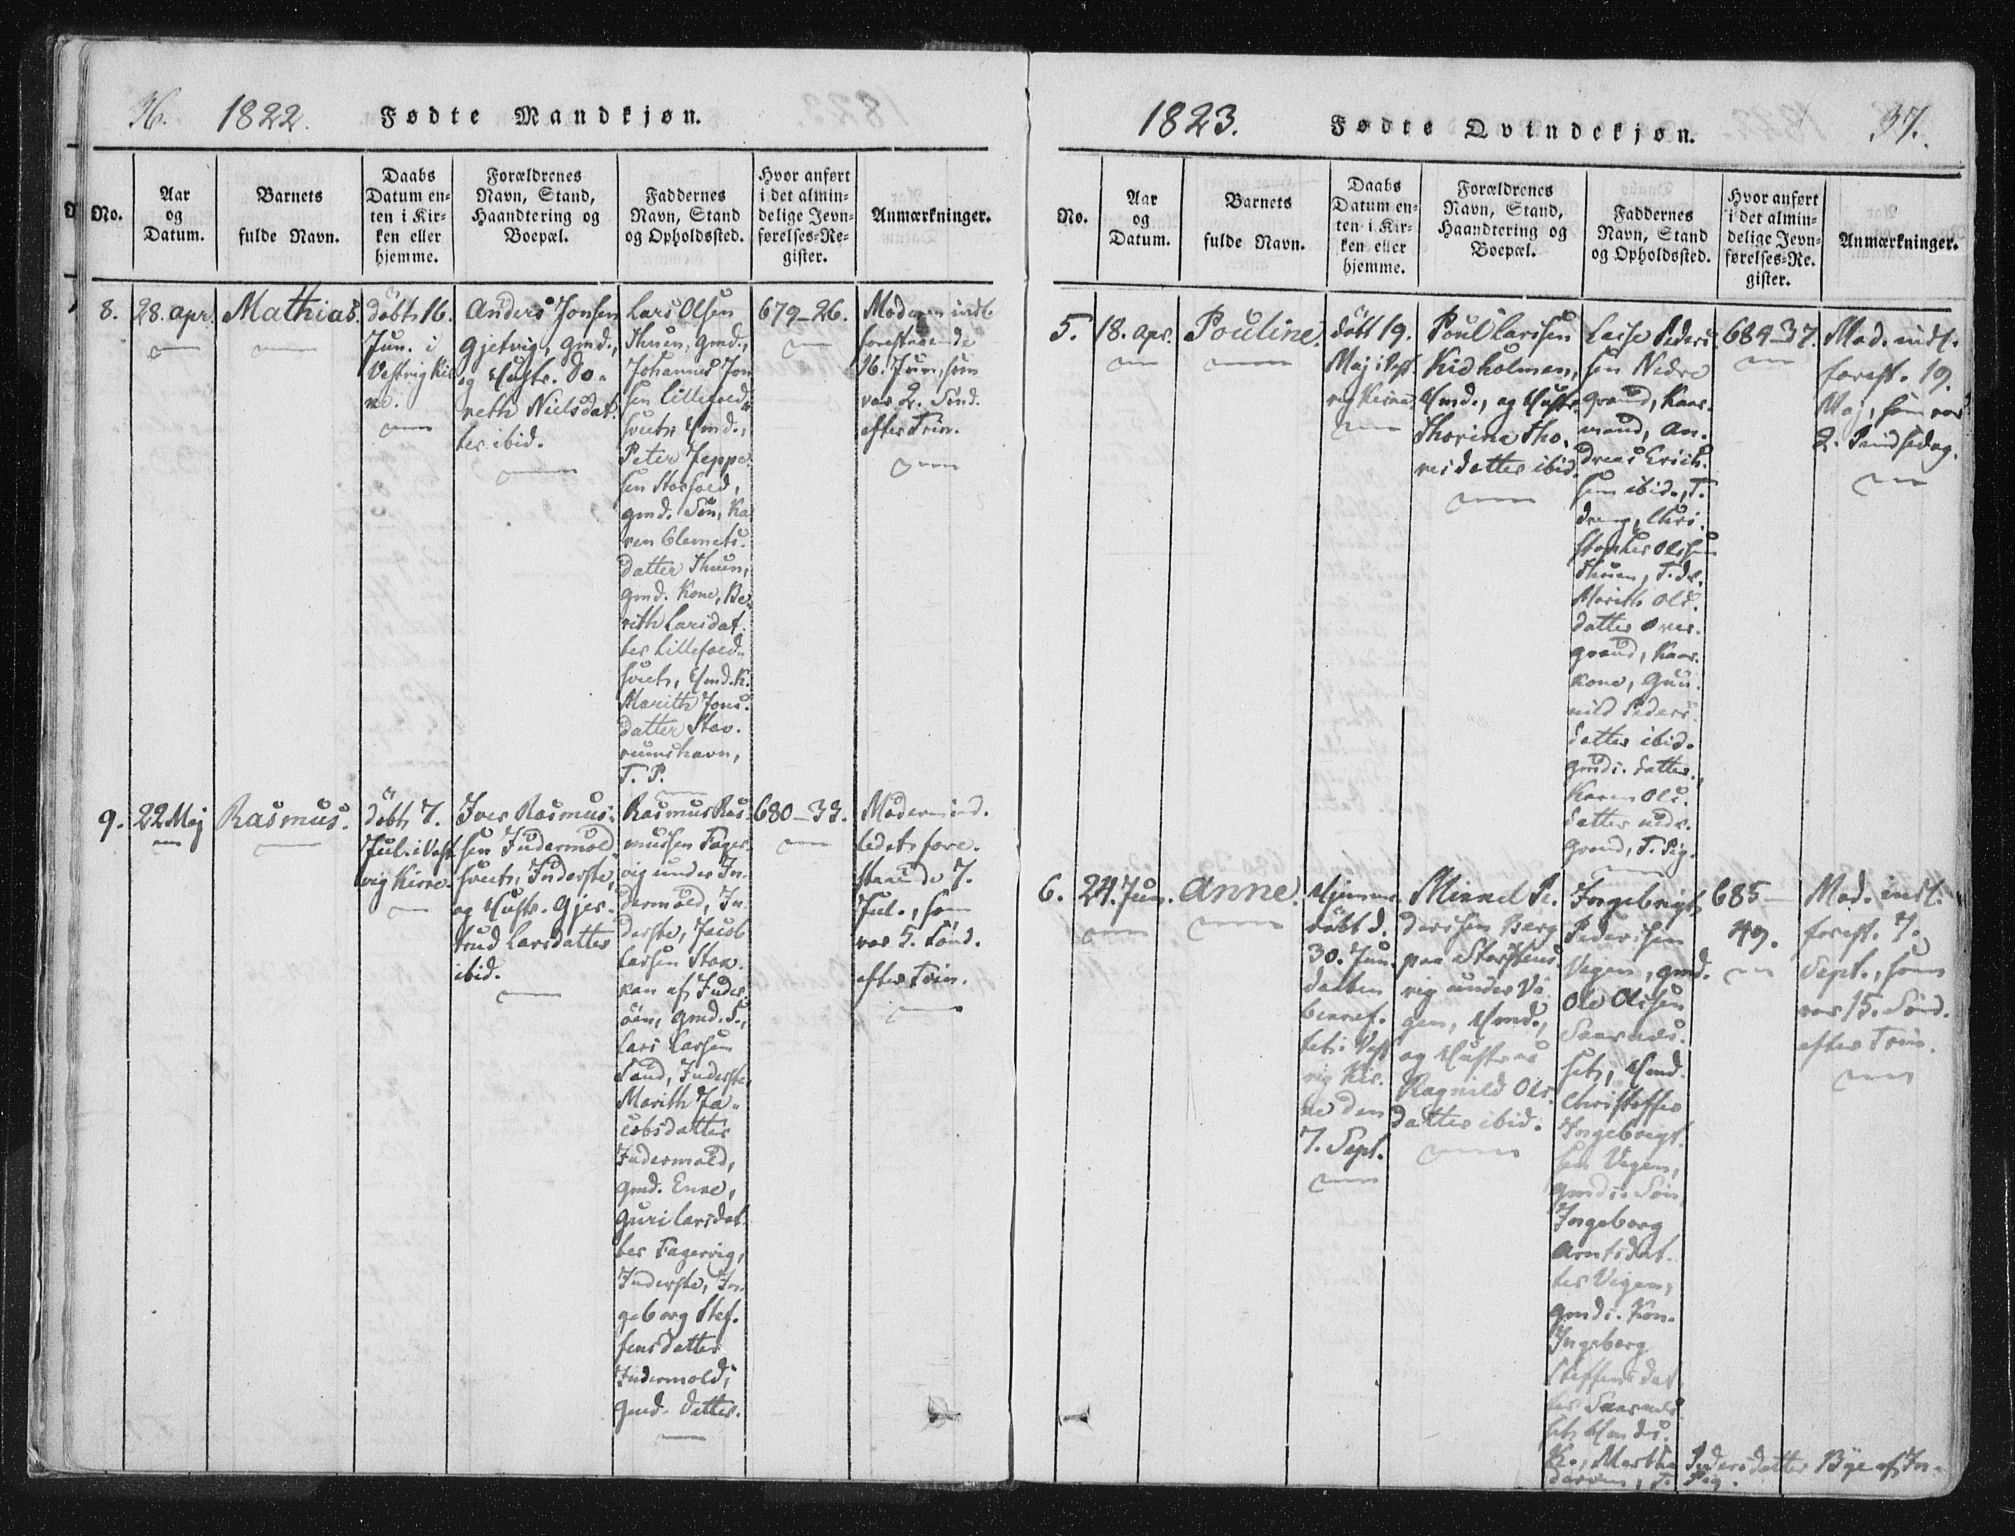 36. 1822. Fødte Mandkjøn.
No.
Aar
og
Datum.
Barnets
fulde Navn.
Daabs
Datum en-
ten i Kir-
ken eller
hjemme.
Forældrenes
Navn, Stand,
Haandtering og
Boepæl.
Faddernes
Navn, Stand
og Opholdssted.
Hvor anført
i det almin-
delige Jevn-
førelses-Re-
gister.
Anmærkninger.
8.
28. apr.
Mathias.
döbt 16.
Jun. i
Vestvig Kir
ke.
Anders Jonsen
Gjetvig, gmd.,
og Hustr. Do-
reth Nielsdat-
ter ibid.
Lars Olsen
Thuen, gmd.,
Johannes Jon
sen Lillefold-
svetn Hmd.,
Peter Jeppe-
sen Storfold,
gmd. Sön, Ka
ren Clemets-
datter Thuen,
gmd. Kone, Be-
rith Larsdat-
ter Lillefold-
svetn, Hmd. K.
Marith Jons-
datter Stav-
rumshavn,
T. P.
679-26.
Moderen indl
forestaaende
16. Jun, som
var 2. Sönd.
efter Trin.
9.
22 Maj
Rasmus.
döbt 7.
Jul. i Vest
vig Kirke.
Iver Rasmus-
sen Indermold
svetn, Inderste,
og Hustr. Gjer-
trud Larsdatter
ibid.
Rasmus Ras-
mussen Fager-
vig under In-
dermold, In-
derste, Jacob
Larsen Stor-
kan af Inder
öen, gmd. S.,
Lars Larsen
Sund, Inderste,
Marith Ja-
cobsdatter
Indermold,
gmd. Enke,
Guri Larsdat-
ter Fagervig,
Inderste, In-
geborg Stef-
fensdatter
Indermold,
gmd. datter.
680-33.
Moderen ind-
ledet fore-
staaende 7.
Jul., som
var 5. Sönd.
efter Trin.
1823. Fødte Qvindekjøn. 37.
No.
Aar
og
Datum.
Barnets
fulde Navn.
Daabs
Datum en-
ten i Kir-
ken eller
hjemme.
Forældrenes
Navn, Stand,
Haandtering og
Boepæl.
Faddernes
Navn, Stand
og Opholdssted.
Hvor anført
i det almin-
delige Jevn-
førelses-Re-
gister.
Anmærkninger.
5.
18. apr.
Pouline.
döbt 19.
Maj i Vest
vig Kirke
Poul Larssen
Kidholmen,
Hmd., og Hustr.
Thorine Tho-
resdatter ibid.
Lasse Peders
sen Nedre
grand, Kaar-
mand, An-
dreas Erich-
sen ibid., T.
dreng, Chri-
stopher Olssen
Thuen, T. dr.
Marith Ols-
datter over-
grand, Kaar-
kone, Gun-
nild Peders-
datter ibid.
gmds. datter.,
Karen Ols-
datter nedr.
grand, T. Pig.
684-37.
Mod. indl.
forest. 19.
Maj, som var
2. Pindsedag.
6.
24. Jun.
Anne.
Hjemme
döbt d.
30. Jun.
daaben
bekræf-
tet i Vest
vig Kir-
ke den
7. Sept.
Mikkel Pe-
derssen Berg
paa Storstens
vig under Vi
gen, Hmd.,
og Hustrue
Ragnild Ols-
datter ibid.
Ingebrigt
Pederssen
Vigen, gmd.
Ole Olssen
Saaraas-
set, Hmd.
Christoffer
Ingebrigt-
sen Vigen,
gmds. Sön
Ingeborg
Arntsdat-
ter Vigen,
gmds. Kon.
Ingeborg
Steffensdat
ter Saaraas
set Hmds.
K., Martha Pedersdatter Bye af In-
deröen, T. Pig.
685-
49.
Mod. indl.
forest. 7.
Sept., som
var 15. Sönd.
efter Trin.